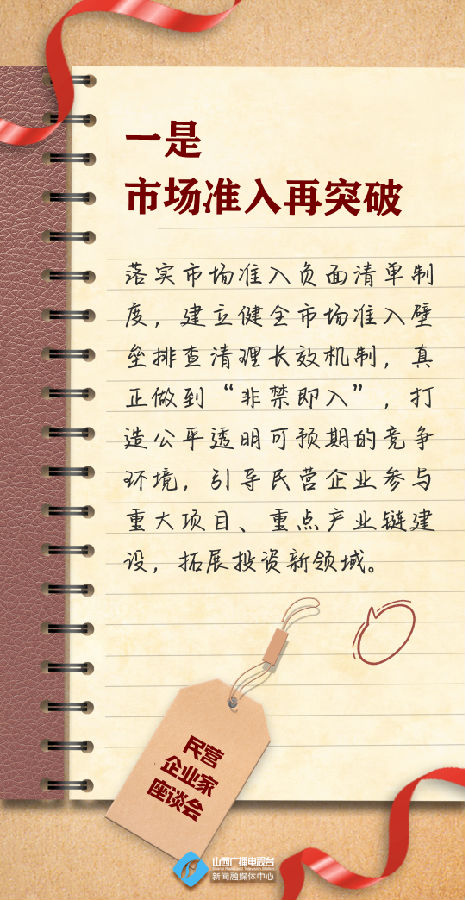 一是
市场准入再突破
落实市场准入负面清单制
度，建立健全市场准入壁
垒排查清理长效机制，真
正做到“非禁即入”，打
造公平透明可预期的竞争
环境，引导民营企业参与
重大项目、重点产业链建
设，拓展投资新领域。
民营
企业家
座谈会
山西广播电视台
新闻融媒体中心